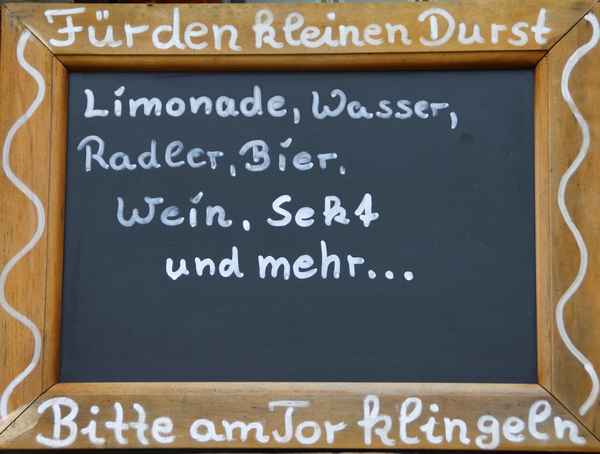 Für den kleinen Durst
Limonade, Wasser,
Radler, Bier,
Wein, Sekt
und mehr...
Bitte am Tor klingeln